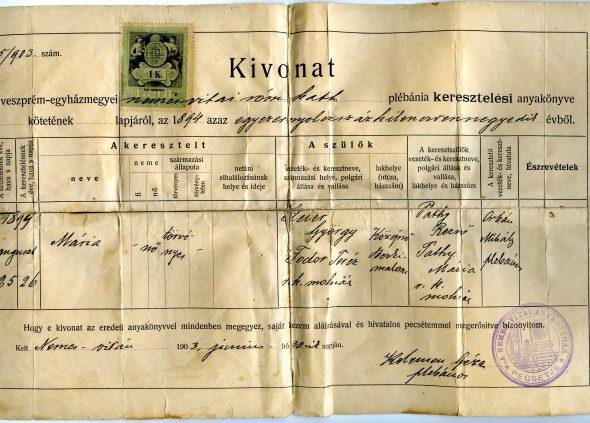 5/903. szám.
1 K.
Kivonat
veszprém-egyházmegyei nemesvitai róm. kath. plébánia keresztelési anyakönyve
kötetének lapjáról, az 1894 azaz egyezernyolczszázkilenczvennegyedik évből.
A keresztelt
A szülők
neve
neme
fi
nő
származási állapota
törvényes
törvénytelen
netáni elhalálozásának helye és ideje
vezeték- és keresztneve, származási helye, polgári állása és vallása
lakhelye (utcza, házszám)
A keresztszülők vezeték- és keresztneve, polgári állása és vallása, lakhelye és házszám
A keresztelő vezeték- és keresztneve, hivatala
Észrevételek
1894
august
25 26
Mária
nő
törvényes
György
Fodor Teréz
r. k.
Pathy
Rezső
Pathy
Mária
r. k.
Orbán
Mihály
plébános
Hogy e kivonat az eredeti anyakönyvvel mindenben megegyez, saját kezem aláirásával és hivatalos pecsétemmel megerősitve bizonyitom.
Kelt Nemes-vitán 1903. junius hó 30-ik napján.
Kelemen Géza
plébános
PECSÉTJE